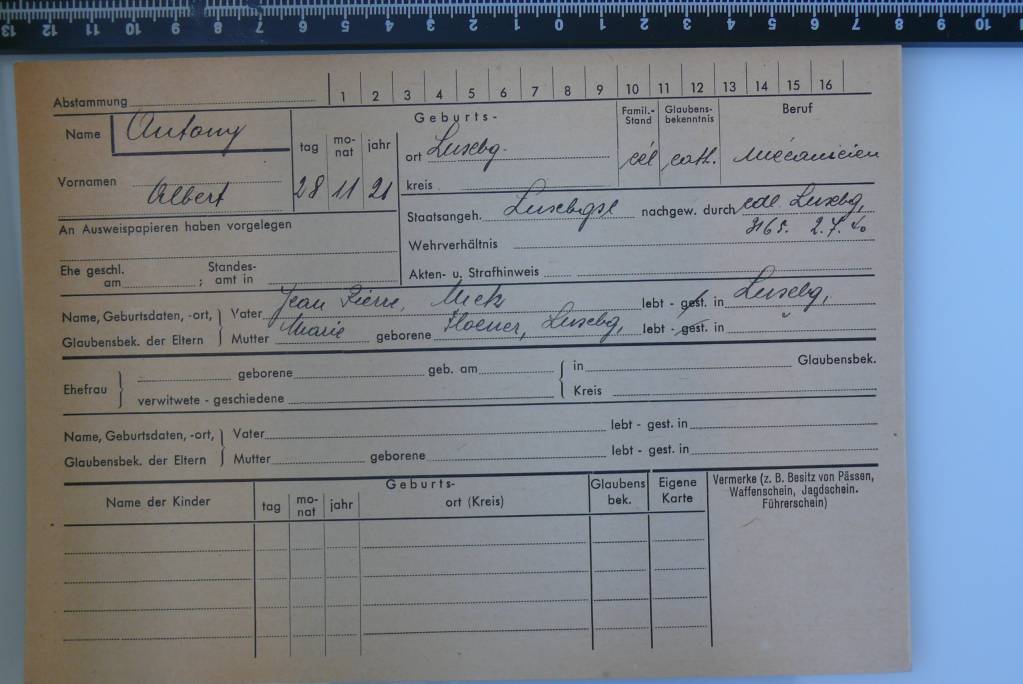 13 12 11 10 9 8 7 6 5 4 3 2 1 0 1 2 3 4 5 6 7 8 9 10
Abstammung 1 2 3 4 5 6 7 8 9 10 11 12 13 14 15 16
Name Antony
Vornamen Albert
Geburts-
tag mo-nat jahr
28 11 21
ort Luxebg.
kreis
Famil.-Stand
cél
Glaubens-bekenntnis
cath.
Beruf
Mécanicien
An Ausweispapieren haben vorgelegen
Staatsangeh. Luxebgse nachgew. durch cdl. Luxebg,
3165. 2.7.40
Wehrverhältnis
Ehe geschl. am ; Standes-amt in
Akten- u. Strafhinweis
Name, Geburtsdaten, -ort, Glaubensbek. der Eltern
Vater Jean Pierre, Mek lebt - gest. in Luxebg,
Mutter Marie geborene Hoener, Luxebg, lebt - gest. in "
Ehefrau geborene geb. am in Glaubensbek.
verwitwete - geschiedene Kreis
Name, Geburtsdaten, -ort, Glaubensbek. der Eltern
Vater lebt - gest. in
Mutter geborene lebt - gest. in
Name der Kinder
Geburts-
tag mo-nat jahr ort (Kreis)
Glaubens bek.
Eigene Karte
Vermerke (z. B. Besitz von Pässen,
Waffenschein, Jagdschein.
Führerschein)